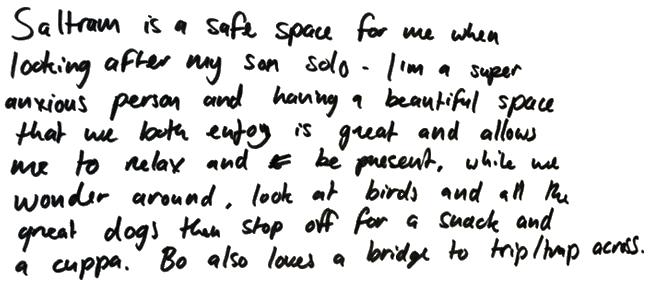 Saltram is a safe space for me when
looking after my son solo - I'm a super
anxious person and having a beautiful space
that we both enjoy is great and allows
me to relax and be present, while we
wonder around, look at birds and all the
great dogs then stop off for a snack and
a cuppa. Bo also loves a bridge to trip/trap across.